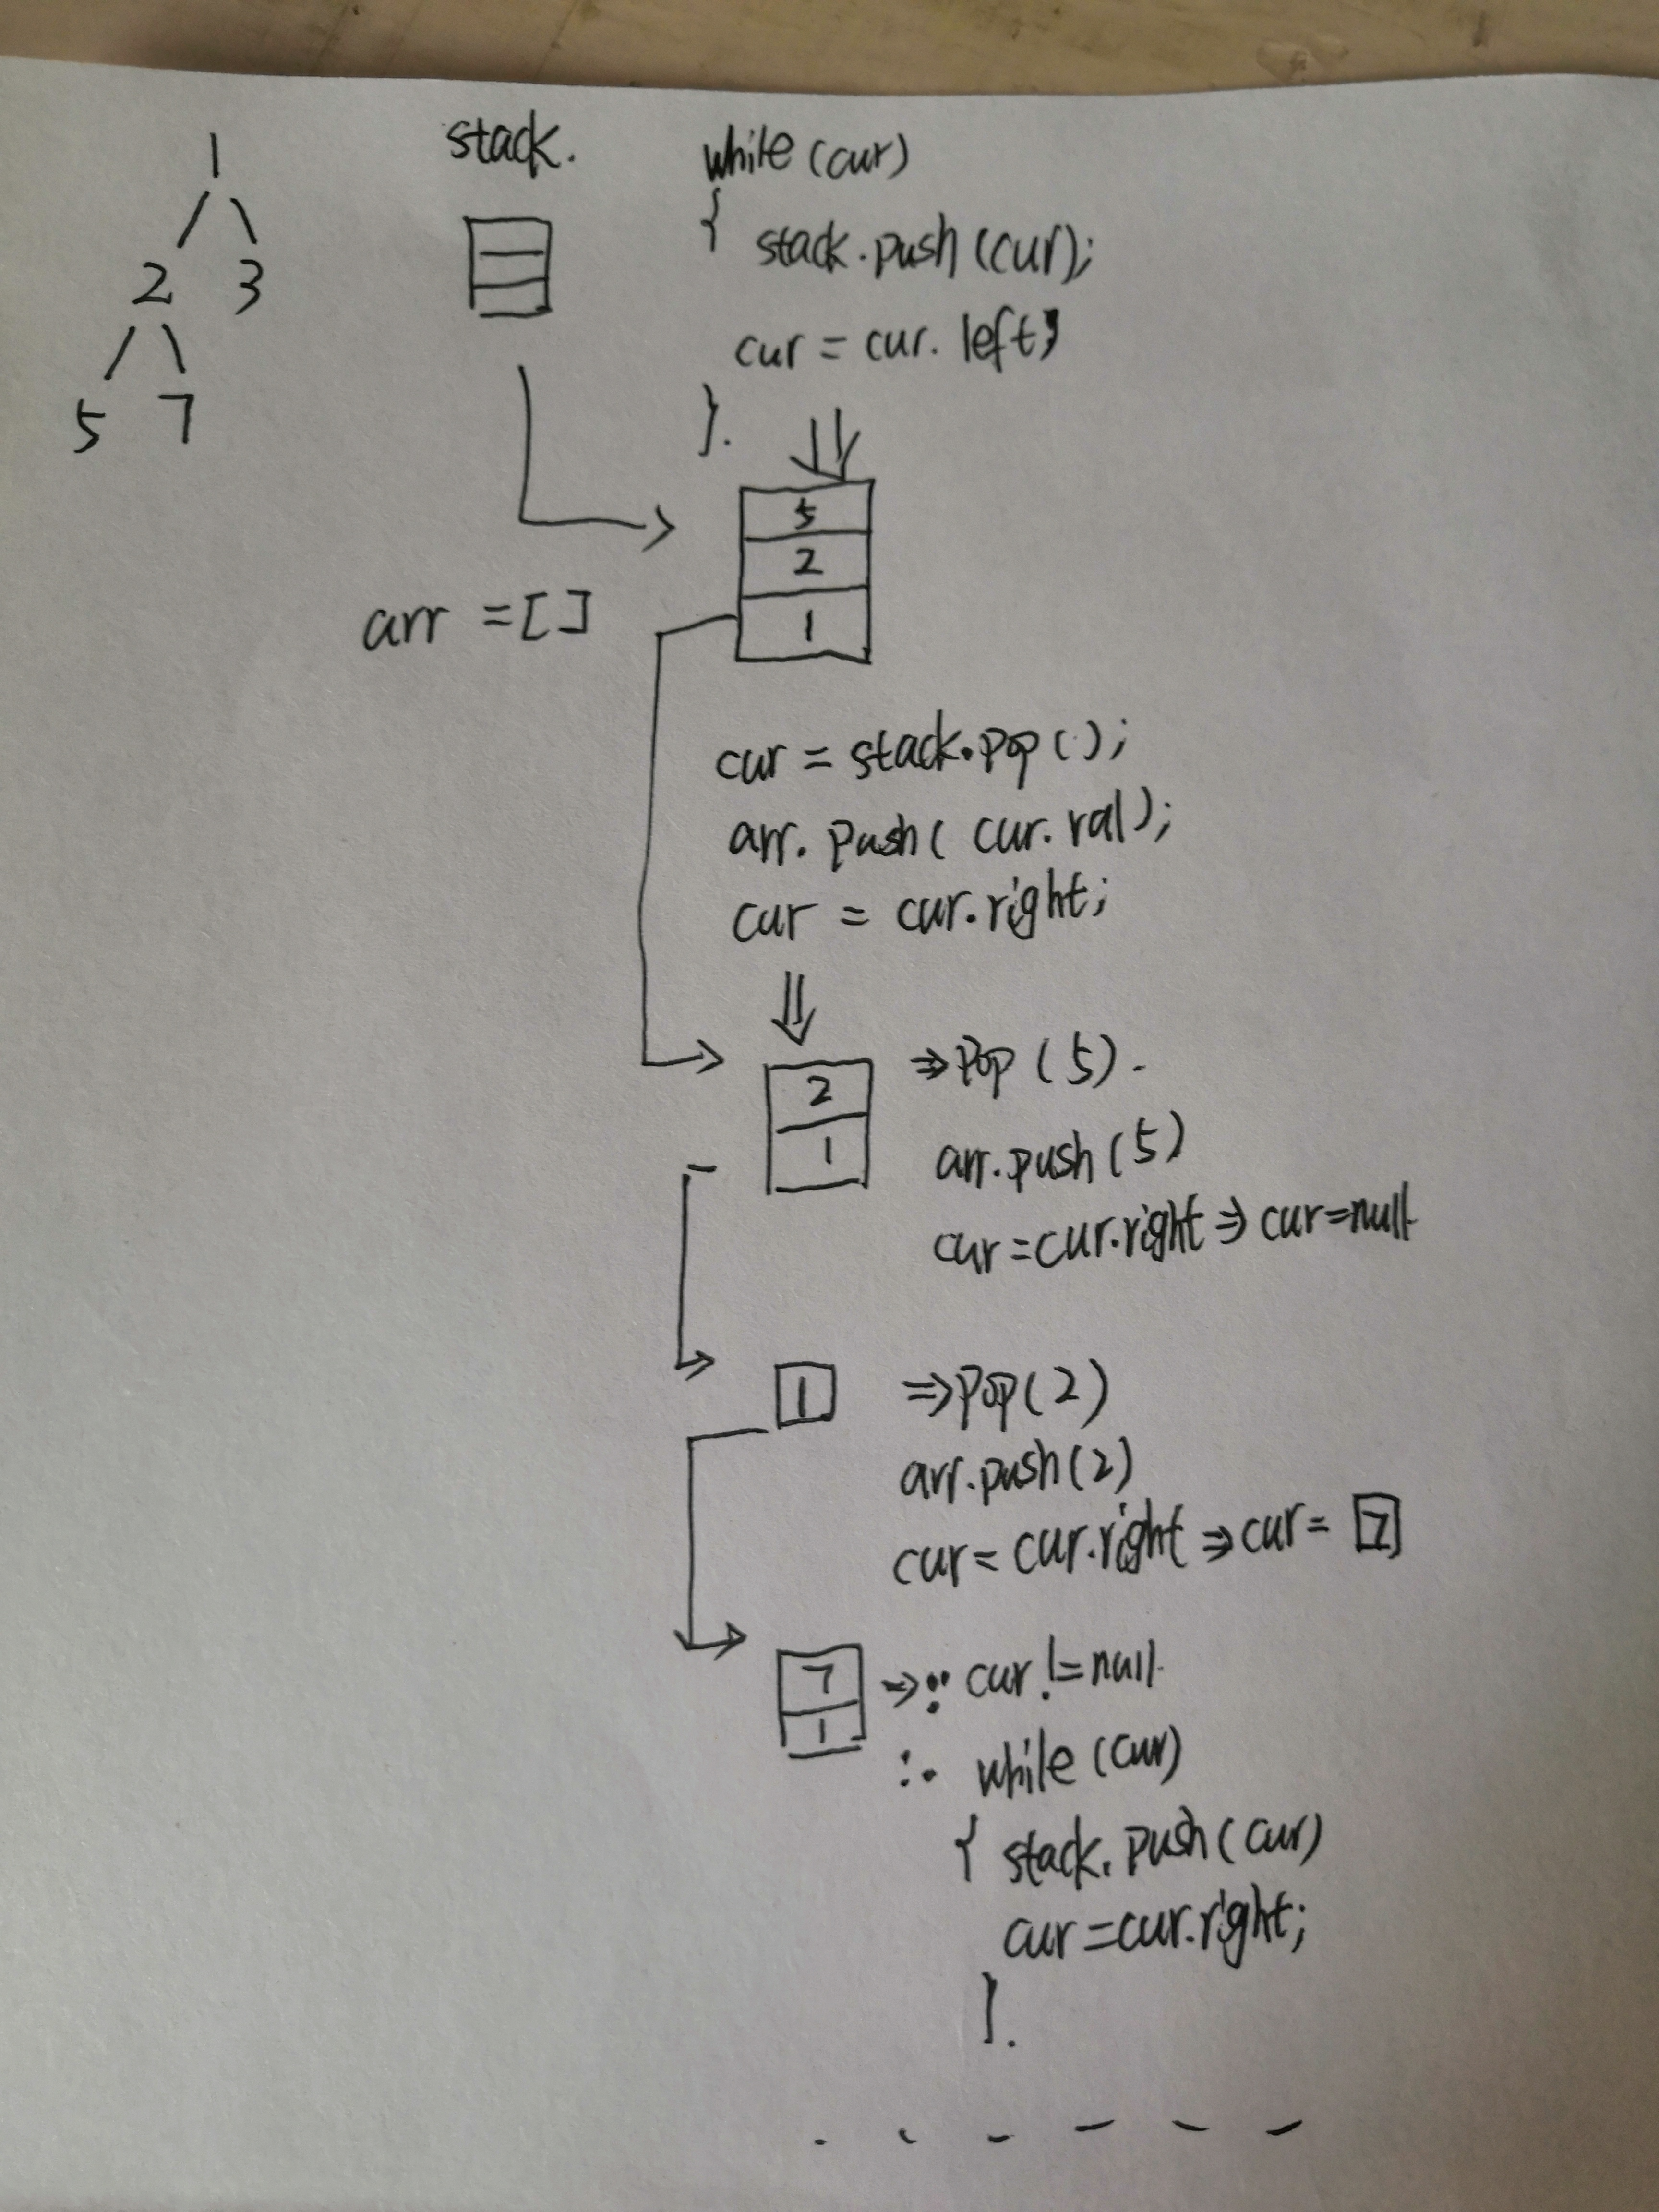 1
2 3
5 7
stack.
while (cur)
{ stack.push (cur);
cur = cur. left;
}.
5
2
1
arr = []
cur = stack.pop ();
arr. push ( cur. val);
cur = cur.right;
2
1
⇒ Pop (5).
arr.push (5)
cur = cur.right ⇒ cur = null
1
⇒ Pop (2)
arr.push (2)
cur = cur.right ⇒ cur = 7
7
1
→ ∵ cur != null
∴ while (cur)
{ stack. push (cur)
cur = cur.right;
}.